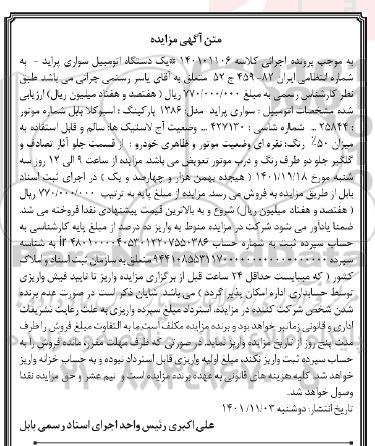 متن آگهی مزایده
به موجب پرونده اجرائی کلاسه ۱۴۰۱۰۱۱۰۶ *یک دستگاه اتومبیل سواری پراید - به
شماره انتظامی ایران ۸۲- ۴۵۹ ج ۵۲ متعلق به آقای یاسر رستمی چراتی می باشد طبق
نظر کارشناس رسمی به مبلغ ۷۷۰/۰۰۰/۰۰۰ ریال (هفتصد و هفتاد میلیون ریال) ارزیابی
شده مشخصات اتومبیل : سواری پراید مدل: ۱۳۸۶ پارکینگ : اسبوکلا بابل شماره موتور
: ۲۵۸۴۴ ... شماره شاسی : ۴۲۷۱۳۰ ... وضعیت آج لاستیک ها: سالم و قابل استفاده به
میزان ۵۰٪ رنگ: نقره ای وضعیت موتور و ظاهری خودرو : از قسمت جلو آثار تصادف و
گلگیر جلو دو طرف رنگ و درب موتور تعویض می باشد. مزایده از ساعت ۹ الی ۱۲ روز سه
شنبه مورخ ۱۴۰۱/۱۱/۱۸ ( هیجده بهمن هزار و چهارصد و یک ) در اجرای ثبت اسناد
بابل از طریق مزایده به فروش می رسد. مزایده از مبلغ پایه به ترتیب ۷۷۰/۰۰۰/۰۰۰ ریال
( هفتصد و هفتاد میلیون ریال) شروع و به بالاترین قیمت پیشنهادی نقدا فروخته می شد.
ضمنا یادآور می شود شرکت در مزایده منوط به واریز ده درصد از مبلغ پایه کارشناسی به
حساب سپرده ثبت به شماره حساب ir ۴۸۰۱۰۰۰۰۴۰۵۳۰۱۲۲۰۷۵۵۰۳۸۶ به شناسه
سپرده متعلق به سازمان ثبت اسناد و املاک
کشور ( که میبایست حداقل ۲۴ ساعت قبل از برگزاری مزایده واریز تا تایید فیش واریزی
توسط حسابداری اداره امکان پذیر گردد ) می باشد. شایان ذکر است در صورت عدم برنده
شدن شخص شرکت کننده در مزایده، استرداد مبلغ سپرده واریزی به علت رعایت تشریفات
اداری و قانونی زمانبر خواهد بود و برنده مزایده مکلف است ما به التفاوت مبلغ فروش را ظرف
مدت پنج روز از تاریخ مزایده واریز نماید. در صورتی که ظرف مهلت مقرر، مانده فروش را به
حساب سپرده ثبت واریز نکند، مبلغ اولیه واریزی قابل استرداد نبوده و به حساب خزانه واریز
خواهد شد. کلیه هزینه های قانونی به عهده برنده مزایده است و نیم عشر و حق مزایده نقدا
وصول خواهد شد.
تاریخ انتشار: دوشنبه ۱۴۰۱/۱۱/۰۳
علی اکبری رئیس واحد اجرای اسناد رسمی بابل